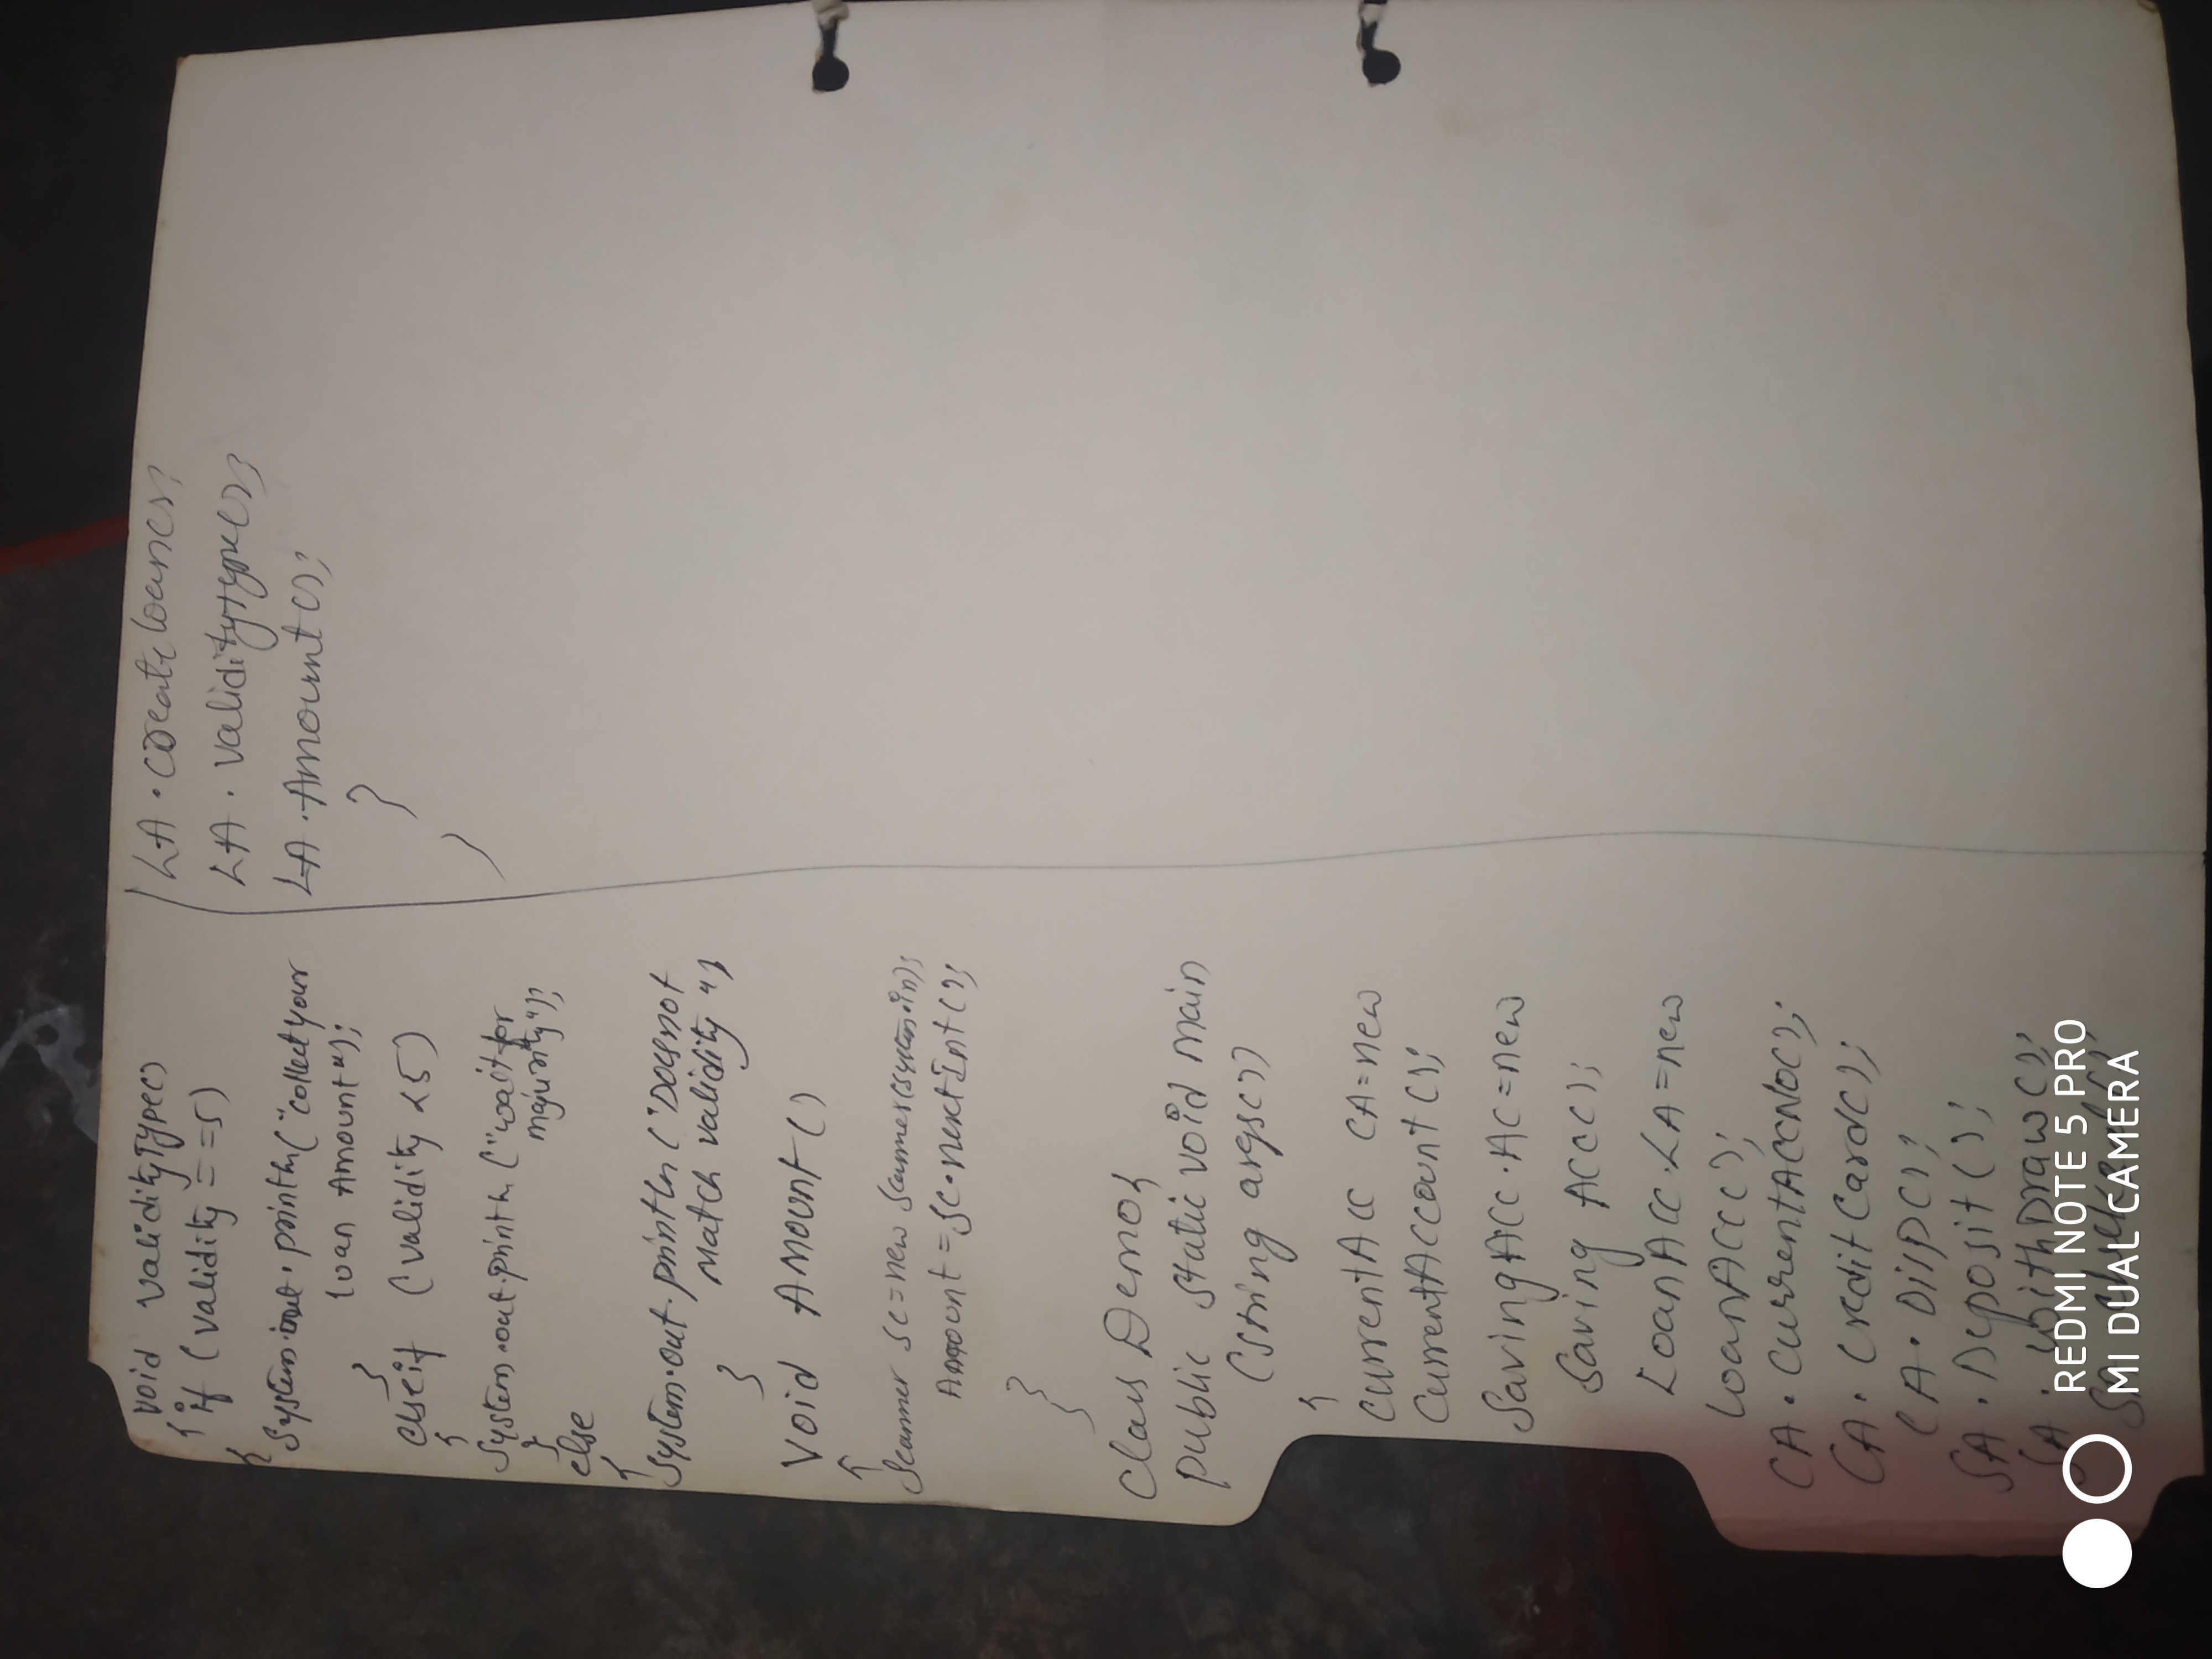 void validityType()
{ if (validity = =5)
{
System.out. println("collect your
loan Amount");
}
elseif (validity <5)
{
System.out.println ("wait for
majurity");
}
else
{
System.out.println ("Does not
Match validity ")
}
Void Amount()
{
Scanner sc=new Scanner(System.in);
Amount =sc.nextInt();
}
}
class Demo{
public static void main
(string args())
{
currentAcc CA=new
CurrentAccount();
SavingAcc.AC=new
Saving Acc();
LoanAcc.LA=new
loanAcc();
CA.CurrentAccNo();
CA.CreditCard();
CA.Disp();
SA.Deposit();
SA.withDraw();
SA
LA.createloan();
LA.validitytype();
LA.Amount();
}
}
REDMI NOTE 5 PRO
MI DUAL CAMERA